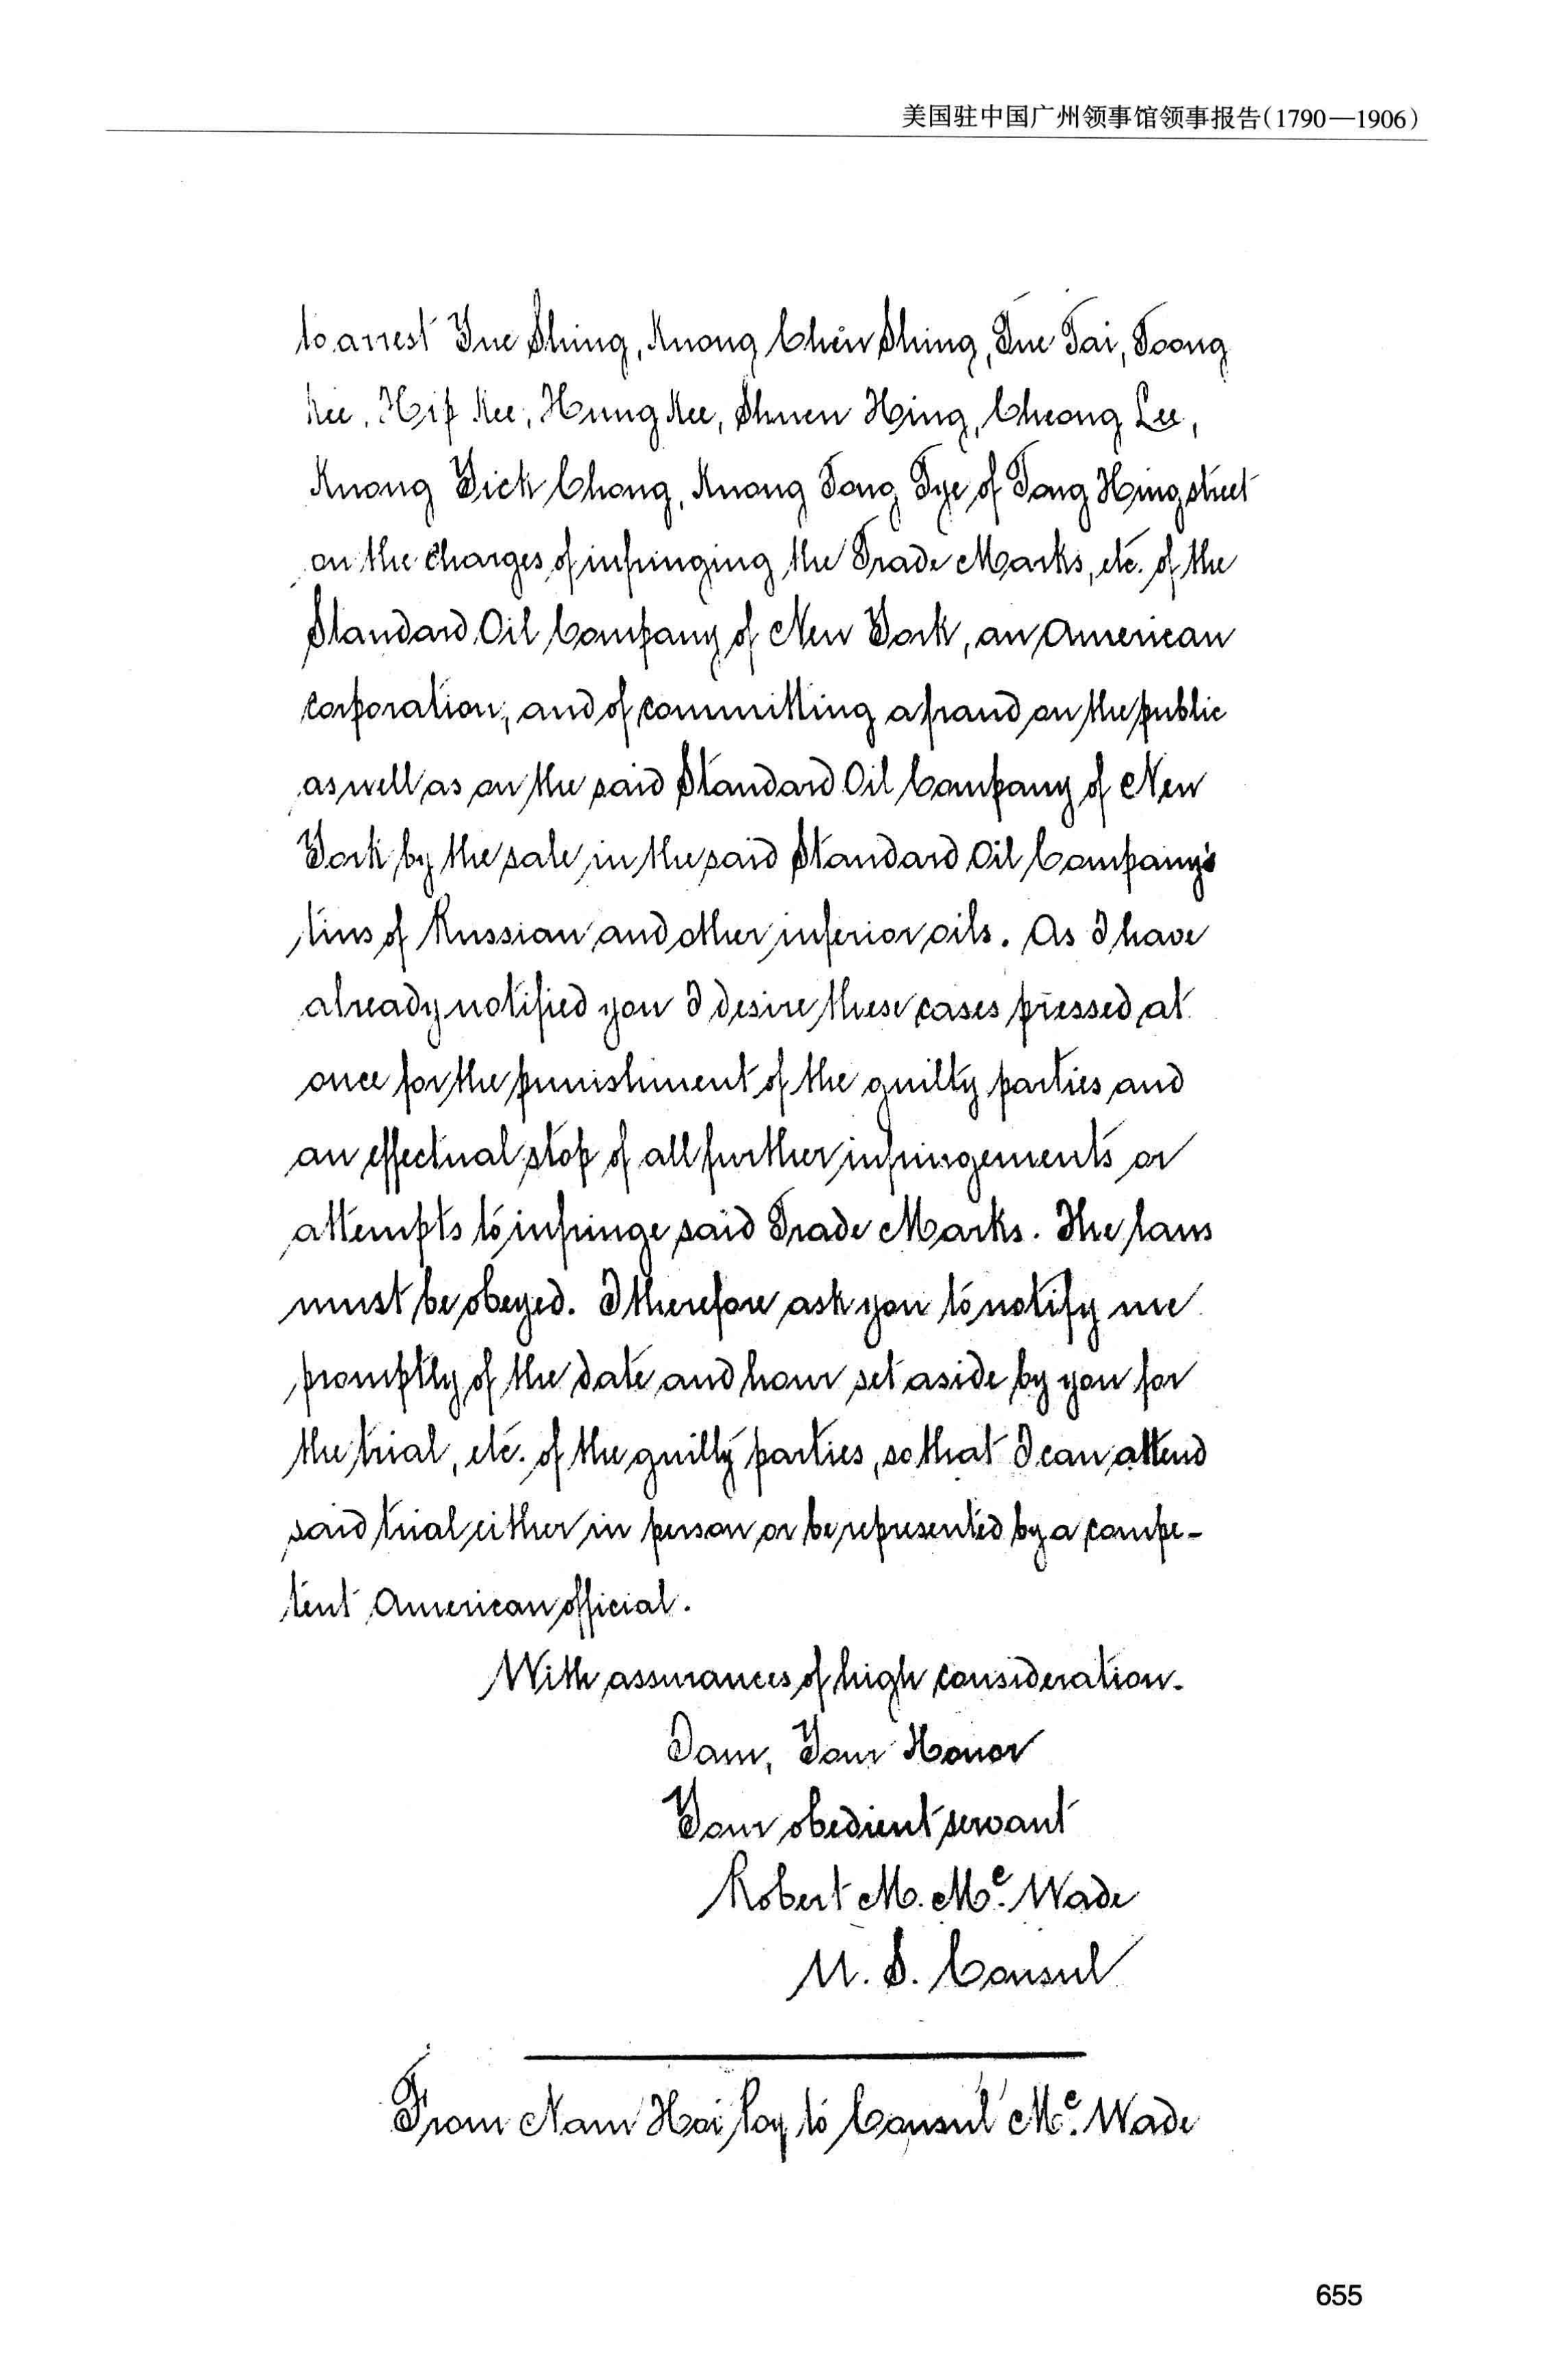 美国驻中国广州领事馆领事报告(1790—1906)
to arrest Yue Shing, Kuong Chin Shing, Tue Tai, Toong
Kee, Hip Kee, Hung Kee, Shuen Hing, Cheong Lee,
Kuong Yick Chong, Kuong Tong Tye of Tong Hing street
on the charges of infringing the Trade Marks, etc. of the
Standard Oil Company of New York, an American
corporation, and of committing a fraud on the public
as well as on the said Standard Oil Company of New
York by the sale in the said Standard Oil Company's
tins of Russian and other inferior oils. As I have
already notified you I desire these cases pressed at
once for the punishment of the guilty parties and
an effectual stop of all further infringements or
attempts to infringe said Trade Marks. The laws
must be obeyed. I therefore ask you to notify me
promptly of the date and hour set aside by you for
the trial, etc. of the guilty parties, so that I can attend
said trial either in person or be represented by a compe-
tent American official.
With assurances of high consideration.
I am, Your Honor
Your obedient servant
Robert M. McWade
U. S. Consul
From Nam Hoi Poy to Consul McWade
655